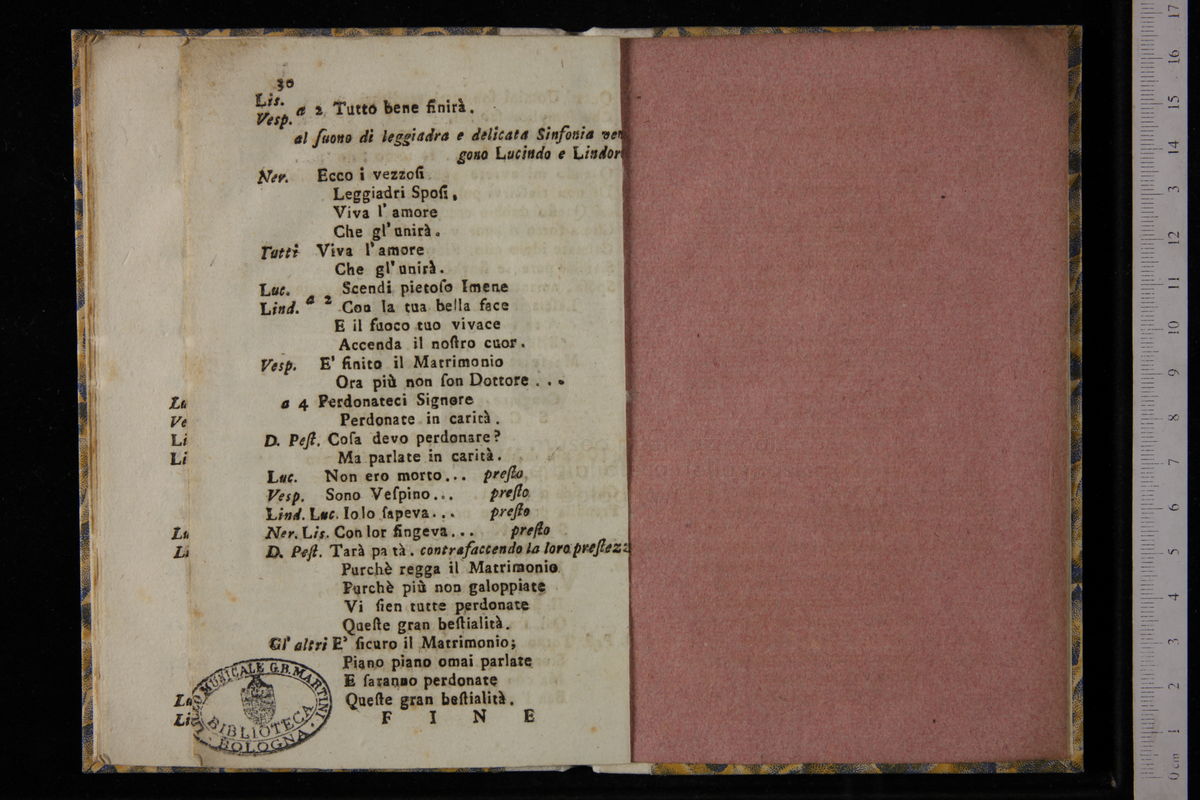 30
Lis.
Vesp. a 2 Tutto bene finirà.
al ſuono di leggiadra e delicata Sinfonia ven
gono Lucindo e Lindor
Ner. Ecco i vezzoſi
Leggiadri Spoſi,
Viva l' amore
Che gl' unirà.
Tutti Viva l'amore
Che gl' unirà.
Luc. Scendi pietoſo Imene
Lind. a 2 Con la tua bella face
E il fuoco tuo vivace
Accenda il noſtro cuor.
Vesp. E' finito il Matrimonio
Ora più non ſon Dottore . . .
a 4 Perdonateci Signore
Perdonate in carità.
D. Peſt. Coſa devo perdonare?
Ma parlate in carità.
Luc. Non ero morto... preſto
Vesp. Sono Veſpino... preſto
Lind. Luc. Io lo ſapeva... preſto
Ner. Lis. Con lor fingeva... preſto
D. Peſt. Tarà pa tà. contrafaccendo la loro preſtezz
Purchè regga il Matrimonio
Purchè più non galoppiate
Vi ſien tutte perdonate
Queſte gran beſtialità.
Gl' altri E' ſicuro il Matrimonio;
Piano piano omai parlate
E ſaranno perdonate
Queſte gran beſtialità.
F I N E
La
Ve
Li
Li
Lu
Li
La
Li
LICEO MUSICALE G.B. MARTINI
BIBLIOTECA
BOLOGNA
0 cm 1 2 3 4 5 6 7 8 9 10 11 12 13 14 15 16 17